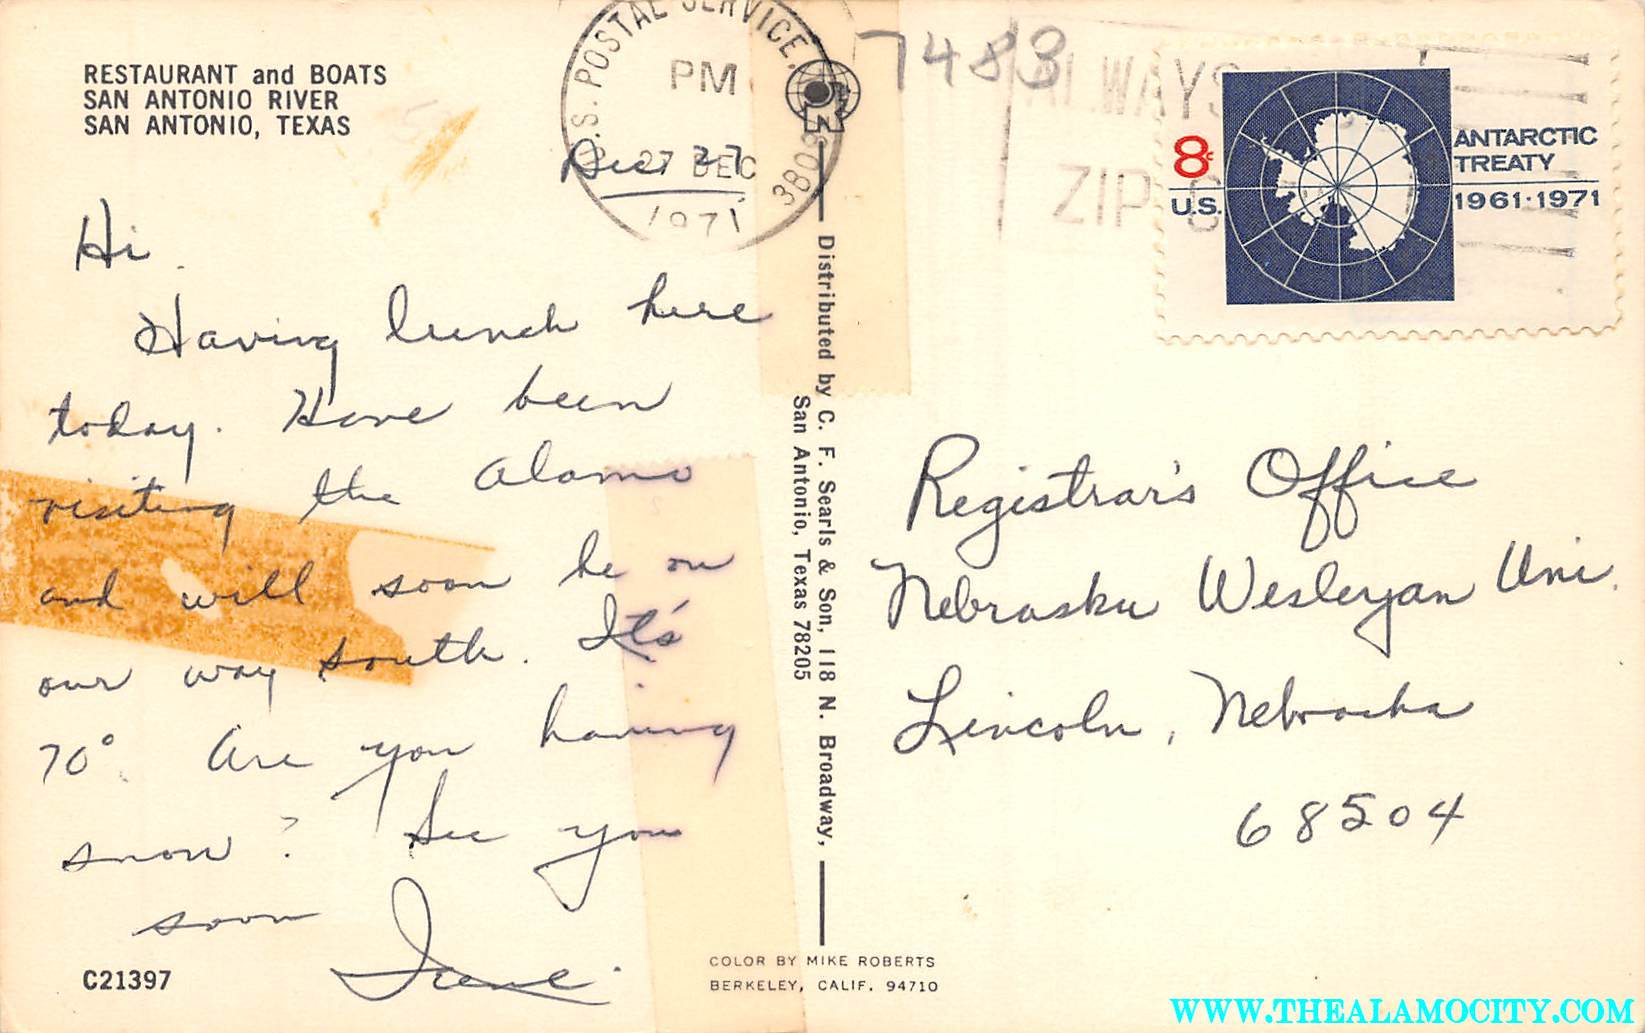 RESTAURANT and BOATS
SAN ANTONIO RIVER
SAN ANTONIO, TEXAS
U.S. POSTAL SERVICE,
PM
27 DEC
1971
Dec 27
7483
ALWAYS
ZIP
8c
U.S.
ANTARCTIC
TREATY
1961·1971
Hi
Having lunch here
today. Have been
visiting the Alamo
and will soon be on
our way south. It's
70°. Are you having
snow? See you
soon
Irene.
Distributed by C. F. Searls & Son, 118 N. Broadway,
San Antonio, Texas 78205
Registrar's Office
Nebraska Wesleyan Uni.
Lincoln, Nebraska
68504
C21397
COLOR BY MIKE ROBERTS
BERKELEY, CALIF. 94710
WWW.THEALAMOCITY.COM